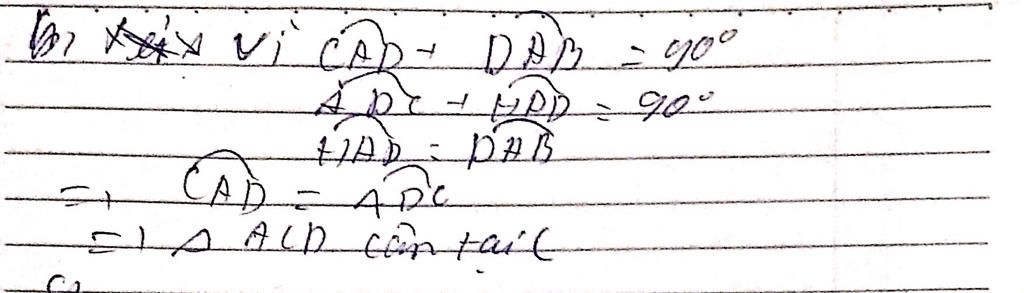 b, Vì CAD + DAB = 90°
ADC + HAD = 90°
HAD = DAB
=> CAD = ADC
=> Δ ACD cân tại C